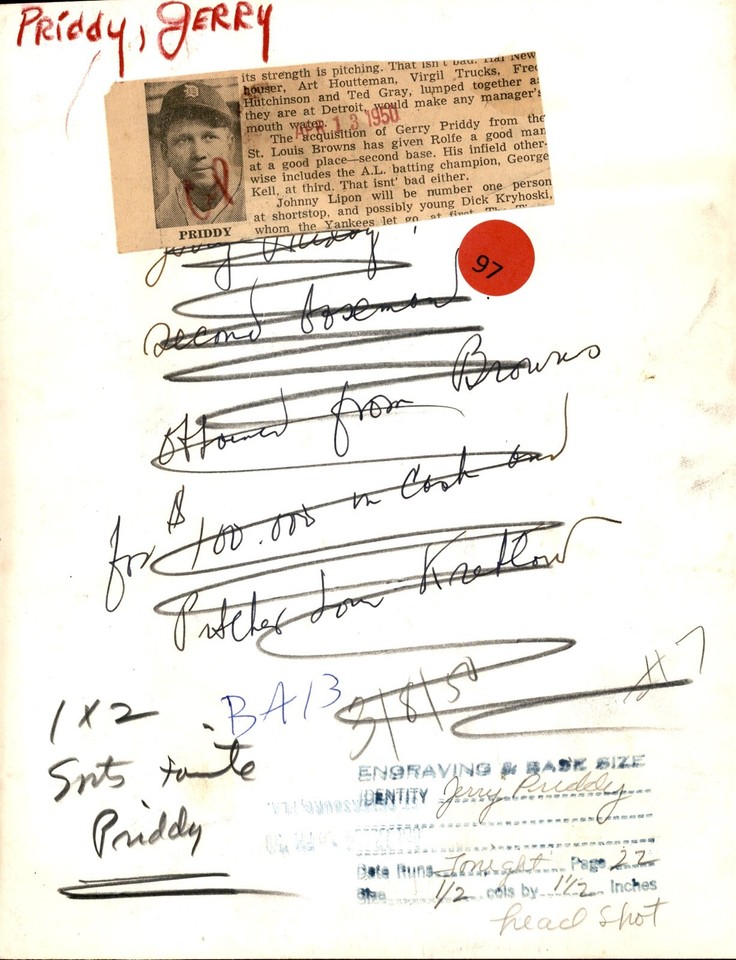 PRiddy, JERRY
its strength is pitching. That isn't bad. Hal New
houser, Art Houtteman, Virgil Trucks, Fred
Hutchinson and Ted Gray, lumped together as
they are at Detroit, would make any manager's
mouth water.
APR 13 1950
The acquisition of Gerry Priddy from the
St. Louis Browns has given Rolfe a good man
at a good place—second base. His infield other-
wise includes the A.L. batting champion, George
Kell, at third. That isnt' bad either.
Johnny Lipon will be number one person
at shortstop, and possibly young Dick Kryhoski,
whom the Yankees let go, at first.
PRIDDY
Jerry Priddy
97
second baseman
obtained from Browns
for $100.000 in cash and
Pitcher Lou Kretlow
3/8/50
#7
1 X 2
BA13
Priddy
ENGRAVING & BASE SIZE
IDENTITY Jerry Priddy
Date Runs Tonight Page 22
Size 1/2 cols by 1 1/2 Inches
head shot